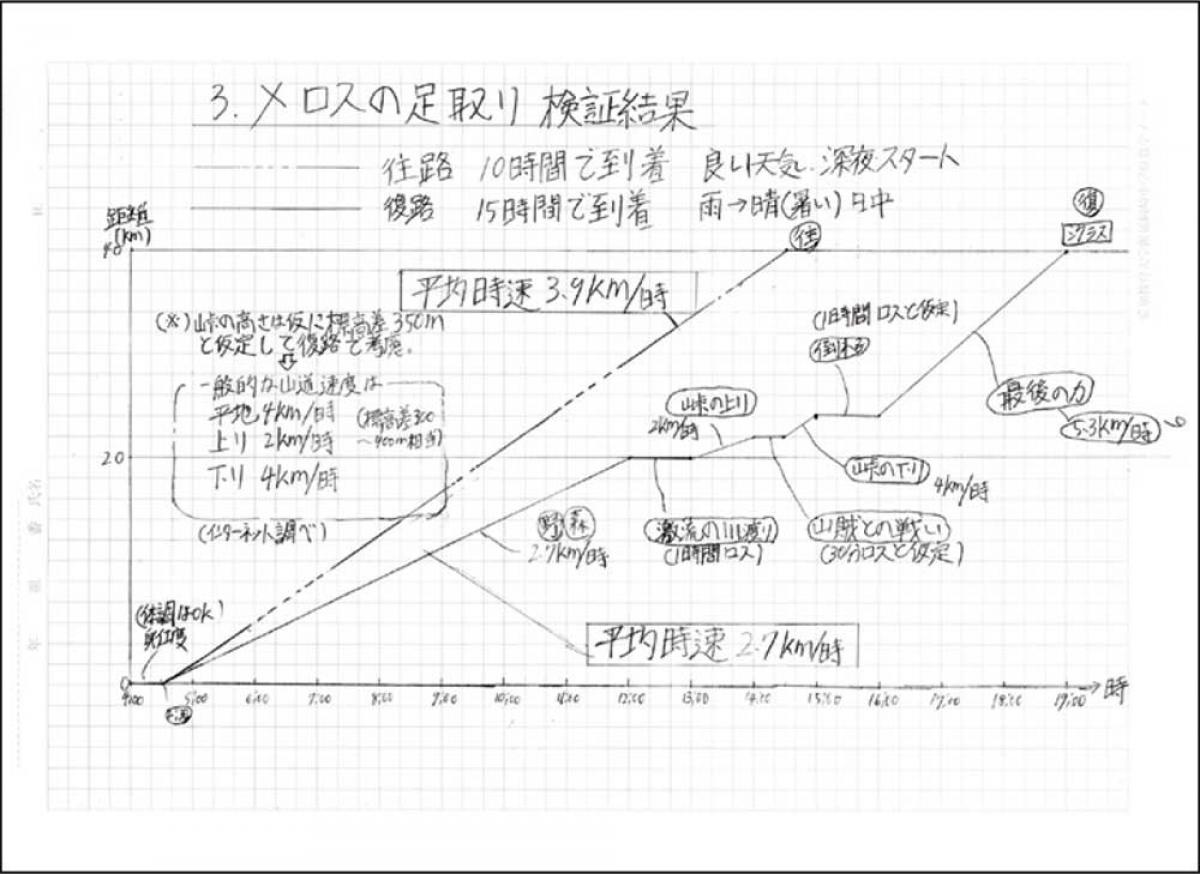 3. メロスの足取り 検証結果
往路 10時間で到着 良い天気、深夜スタート
復路 15時間で到着 雨→晴(暑い)日中
距離
(km)
復
シクラス
往
平均時速 3.9km/時
(※)山峠の高さは仮に標高差350m
と仮定して復路で考慮。
一般的な山道速度は
平地 4km/時
上り 2km/時
下り 4km/時
(標高差300
~400m相当)
(インターネット調べ)
(1日時間ロスと仮定)
最後の力
5.3km/時
山峠の上り
2km/時
20
山峠の下り
4km/時
野 森
2.7km/時
激流の川渡り
(1時間ロス)
山賊との戦い
(30分ロスと仮定)
(体調はOK)
平均時速 2.7km/時
0
4:00 5:00 6:00 7:00 8:00 9:00 10:00 11:00 12:00 13:00 14:00 15:00 16:00 17:00 18:00 19:00 時